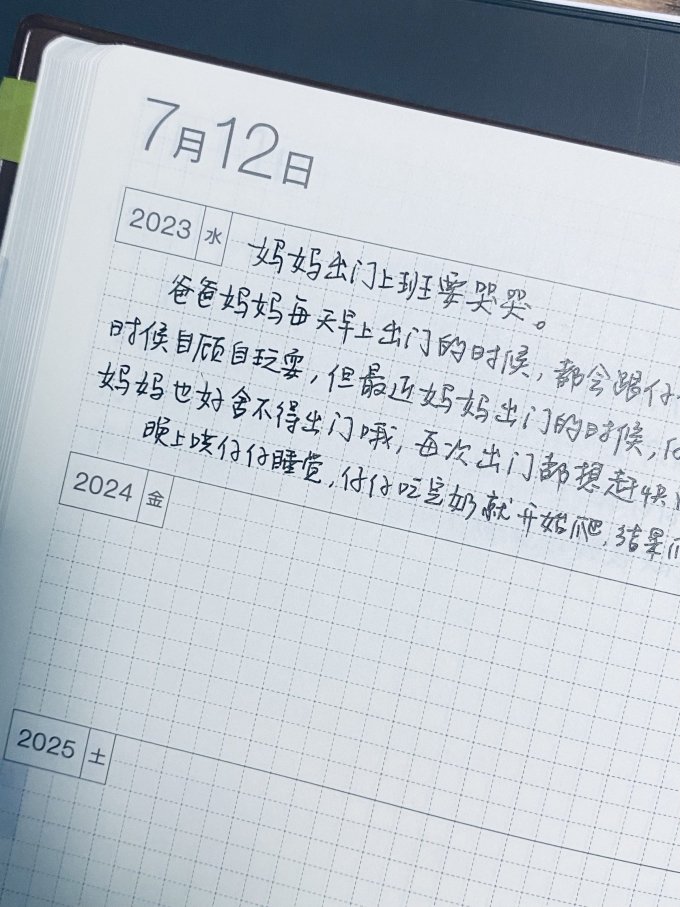 7月12日
2023 水
妈妈出门上班要哭哭。
爸爸妈妈每天早上出门的时候,都会跟仔
时候自顾自玩耍,但最近妈妈出门的时候,
妈妈也好舍不得出门哦,再次出门都想赶快
晚上哄仔仔睡觉,仔仔吃完奶就开始爬,结果
2024 金
2025 土